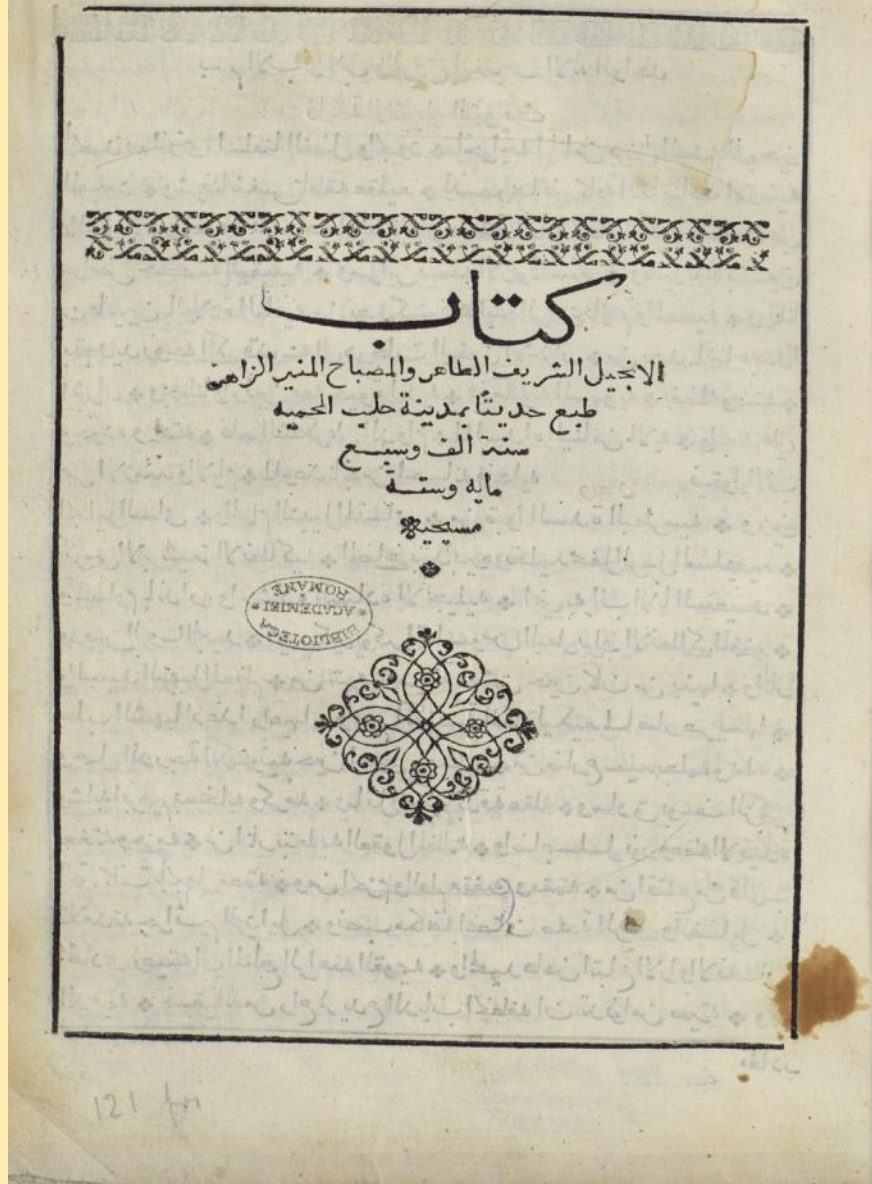 كتاب
الانجيل الشريف الطاهر والمصباح المنير الزاهر
طبع حديثًا بمدينة حلب المحميه
سنة الف وسبع
مايه وستة
مسيحية
BIBLIOTECA
ACADEMIEI
ROMANE
121